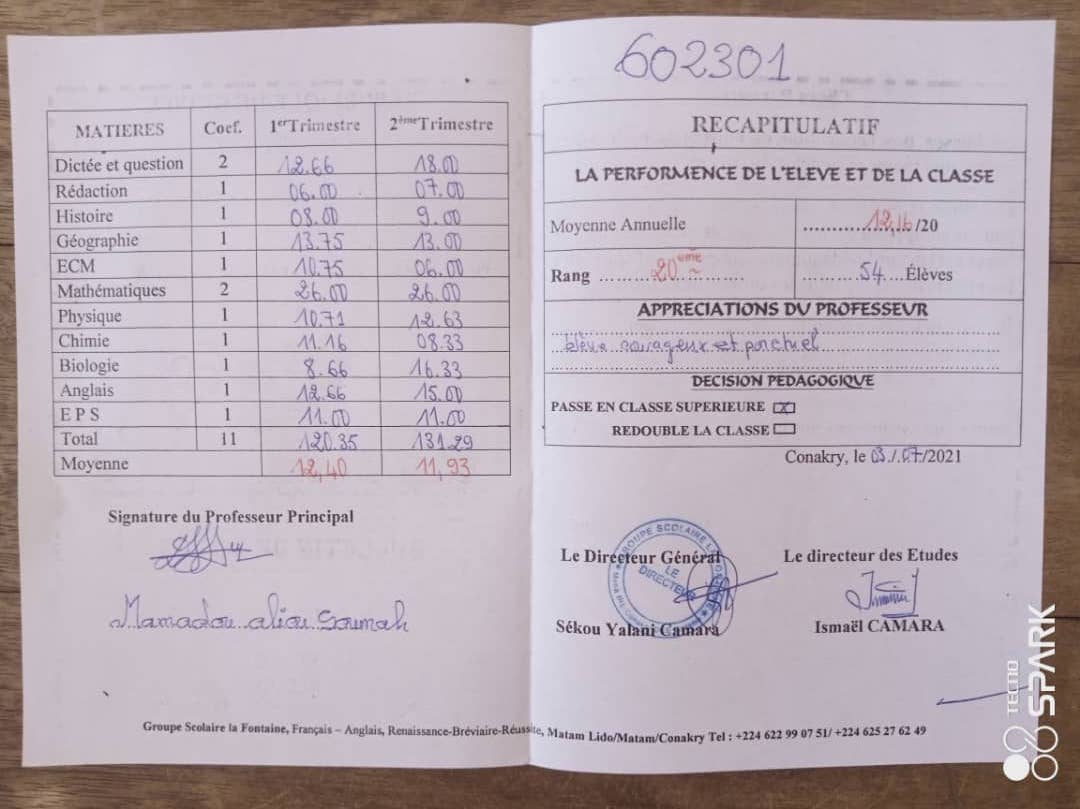 MATIERES Coef. 1erTrimestre 2èmeTrimestre
Dictée et question 2 12.66 18.00
Rédaction 1 06.00 07.00
Histoire 1 08.00 9.00
Géographie 1 13.75 13.00
ECM 1 10.75 06.00
Mathématiques 2 26.00 26.00
Physique 1 10.71 12.63
Chimie 1 11.16 08.33
Biologie 1 8.66 16.33
Anglais 1 12.66 15.00
E P S 1 11.00 11.00
Total 11 120.35 131.29
Moyenne 12,40 11,93
Signature du Professeur Principal
Mamadou aliou Soumah
602301
RECAPITULATIF
LA PERFORMENCE DE L'ELEVE ET DE LA CLASSE
Moyenne Annuelle 12,16/20
Rang 20ème 54 Élèves
APPRECIATIONS DU PROFESSEUR
Elève courageux et ponctuel
DECISION PEDAGOGIQUE
PASSE EN CLASSE SUPERIEURE X
REDOUBLE LA CLASSE
Conakry, le 03/07/2021
Le Directeur Général Le directeur des Etudes
GROUPE SCOLAIRE
LE
DIRECTEUR
Sékou Yalani Camara Ismaël CAMARA
Groupe Scolaire la Fontaine, Français – Anglais, Renaissance-Bréviaire-Réussite, Matam Lido/Matam/Conakry Tel : +224 622 99 07 51/ +224 625 27 62 49
TECNO
SPARK